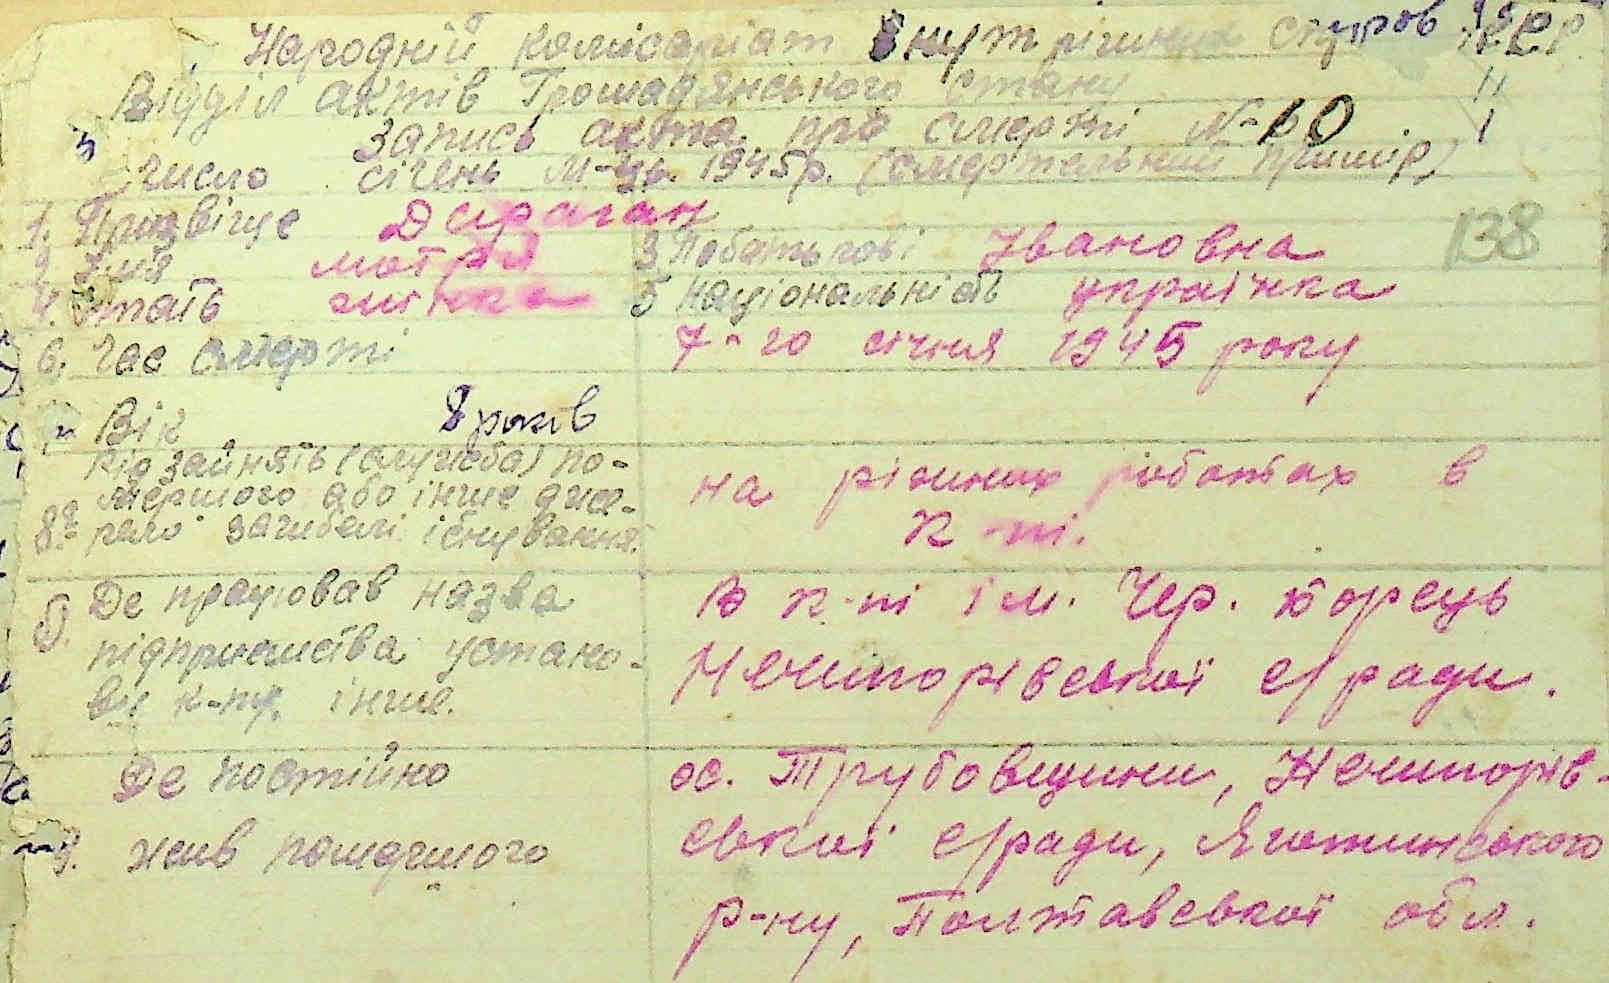 Народній комісаріат внутрішних справ УССР
Відділ актів Громадянського стану
Запись акта про смерті №10
число січень м-ць 1945р. (смертельний примір)
1. Призвіще Дараган
138
2. Імя Мотря 3 Побатькові Івановна
4. Стать жінка 5 Національність українка
6. Час смерті 7-го січня 1945 року
7. Вік 8 років
Рід зайнять (служба) по-
мершого або інше дже-
8.а рело загибелі існування.
на різних роботах в
к-пі.
б). Де працював назва
підприємства устано-
ви к-пу, інше.
В к-пі ім. Чер. борець
Нечипорівської с/ради.
Де постійно
9. жив помершого
ос. Трубовщини, Нечипорів-
ської с/ради, Яготинського
р-ну, Полтавської обл.